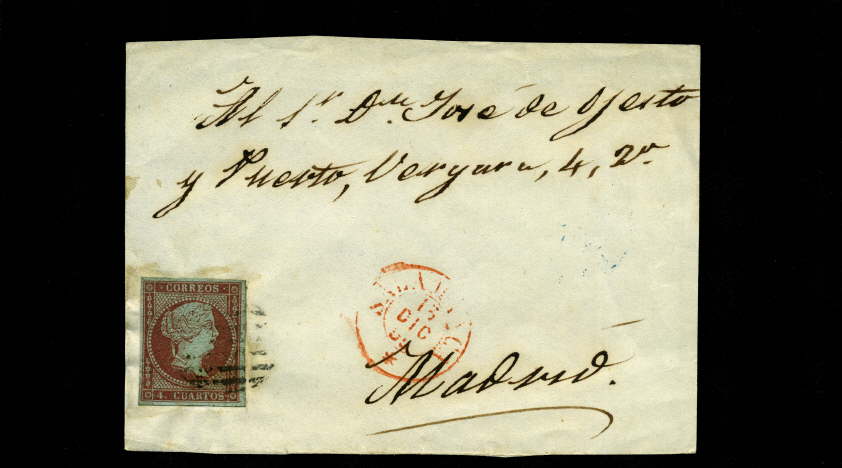 Al Sr. Dn. José de Ojesto
y Puerto, Vergara, 4, 2º
CORREOS
4. CUARTOS
DIC
Madrid.